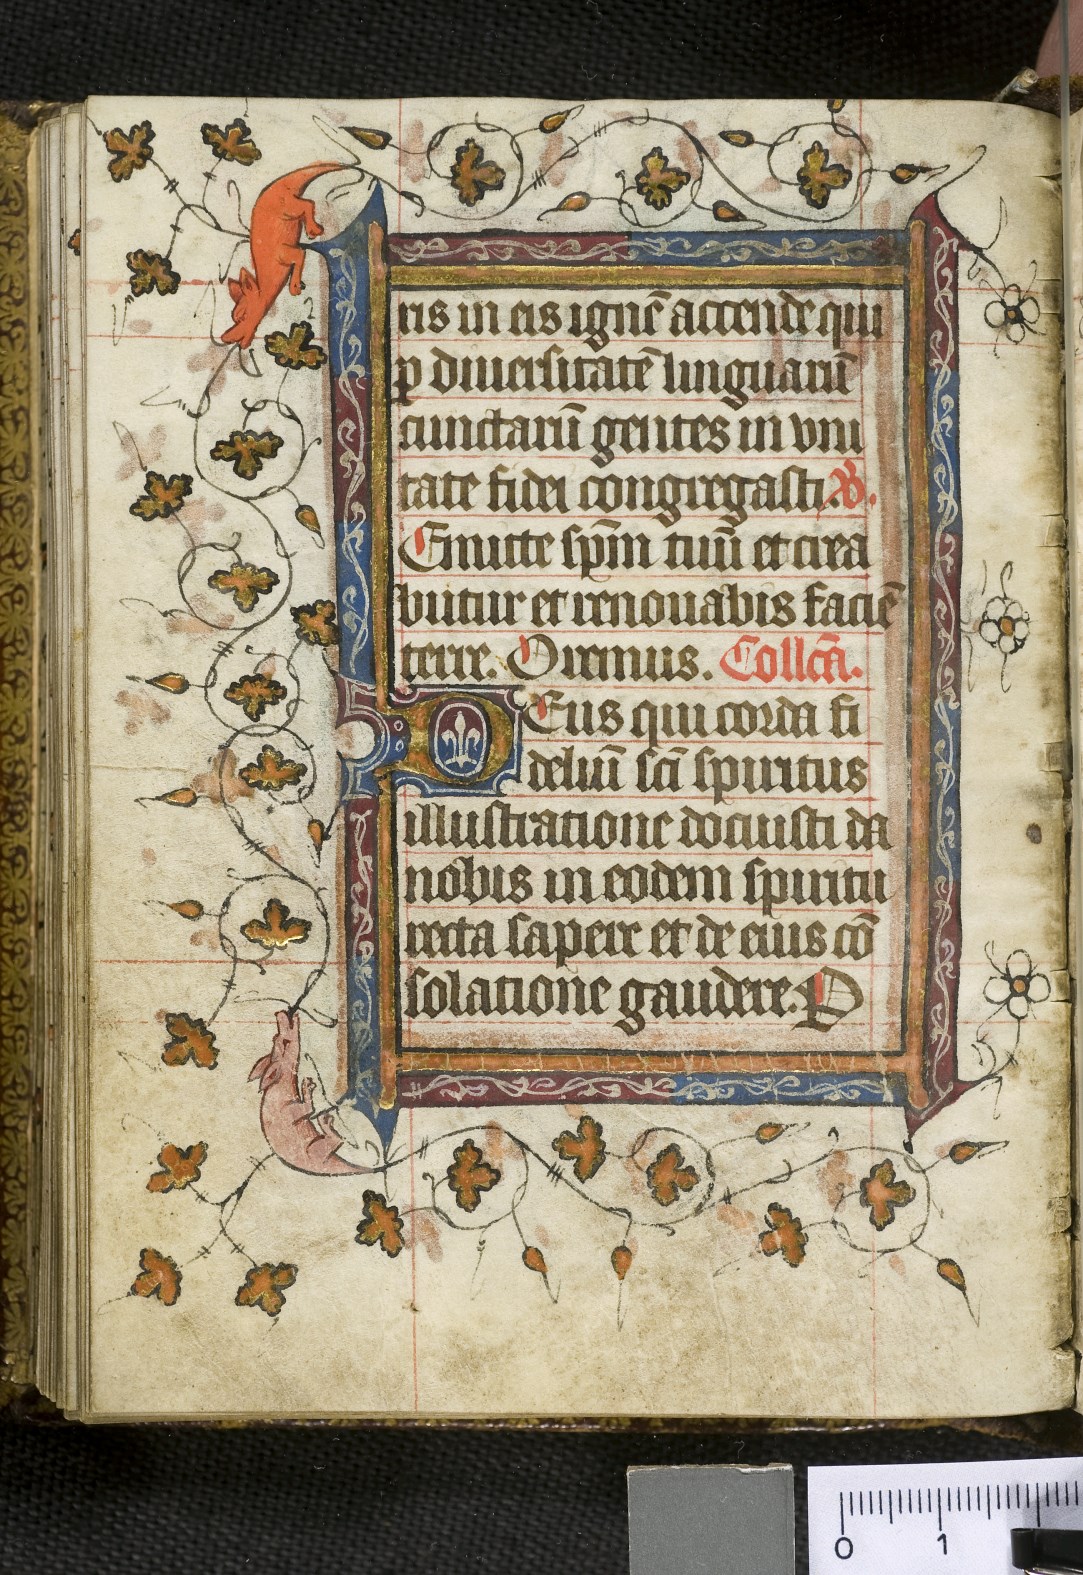 ris in eis ignē accende qui
p diuersitatē linguarū
cunctarū gentes in vni
tate fidei congregasti. V.
Emitte sp̄m tuū et crea
buntur et renouabis faciē
terre. Oremus. Collc̄a.
DEus qui corda fi
deliū sc̄i spiritus
illustratione docuisti da
nobis in eodem spiritu
recta sapere et de eius cō
solatione gaudere. P
0 1